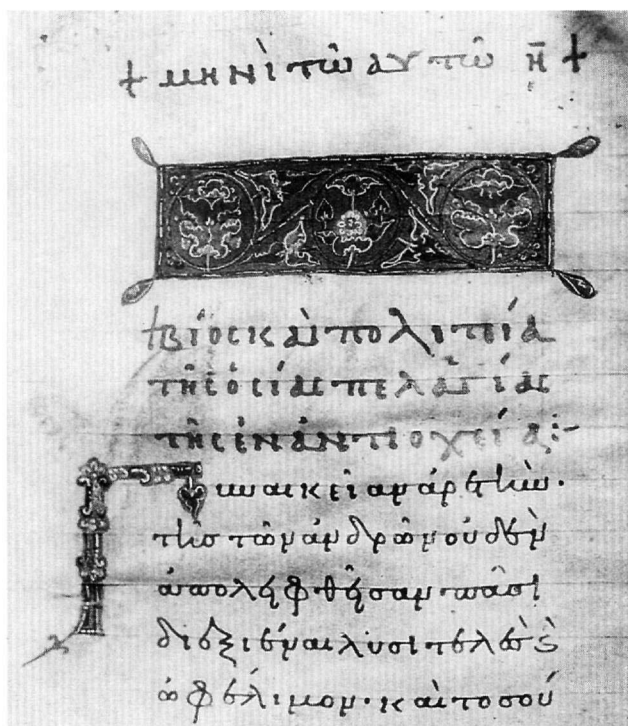 + μηνὶ τῶ αὐτῶ η̄ +
+ βίος καὶ πολιτεία
τῆς ὁσίας πελαγίας
τῆς ἐν ἀντιοχεία:-
Γυναικείαν ἀρετὴν·
τῆς τῶν ἀνδρῶν οὐδὲν
ἀποληφθῆσαν πᾶσι
διεξιέναι λυσιτελὲς ϗ
ὠφέλιμον· καὶ τοσού